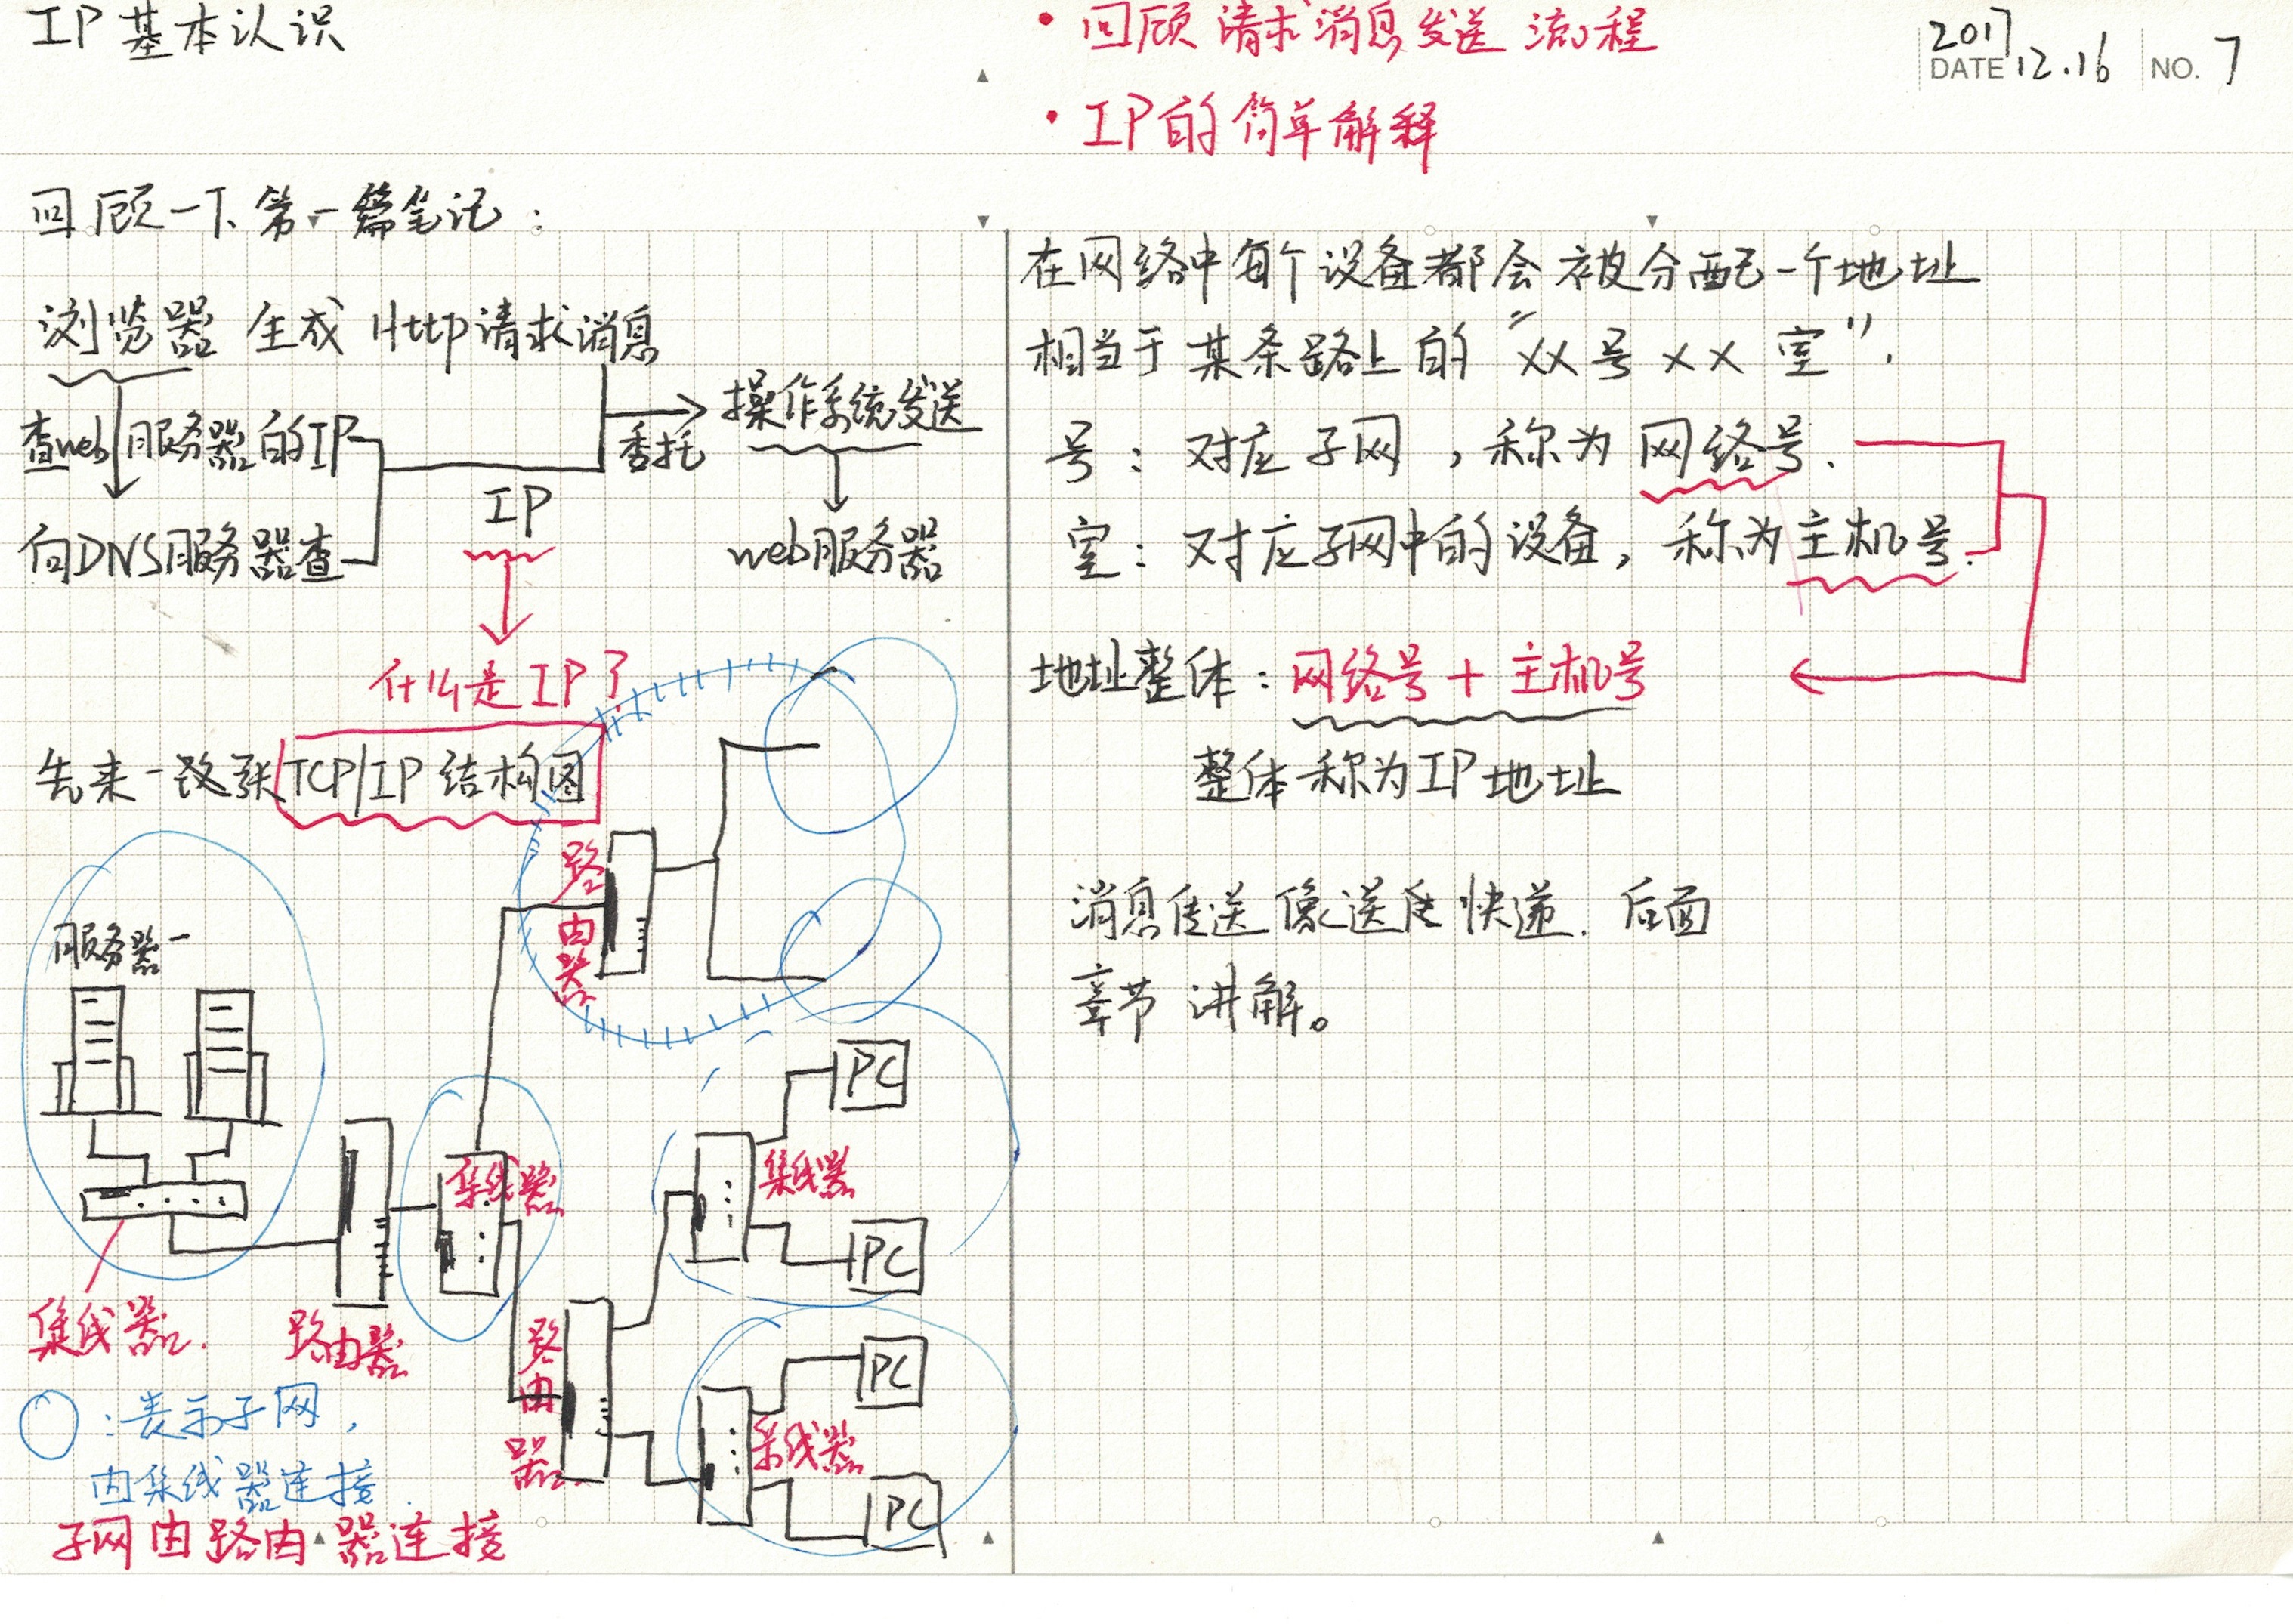 IP基本认识
• 回顾请求消息发送流程
• IP的简单解释
2017
DATE 12.16 NO. 7
回顾一下第一篇笔记：
浏览器 生成 Http请求消息
查web服务器的IP
委托
操作系统发送
向DNS服务器查
IP
web服务器
什么是IP？
先来一张TCP/IP结构图
路由器
服务器
PC
集线器
集线器
PC
集线器.
路由器
路由器
PC
集线器
PC
○：表示子网，
由集线器连接.
子网由路由器连接
在网络中每个设备都会被分配一个地址
相当于某条路上的“XX号XX室”.
号：对应子网，称为网络号.
室：对应子网中的设备，称为主机号.
地址整体：网络号＋主机号
整体称为IP地址
消息传送像送快递. 后面
章节讲解。